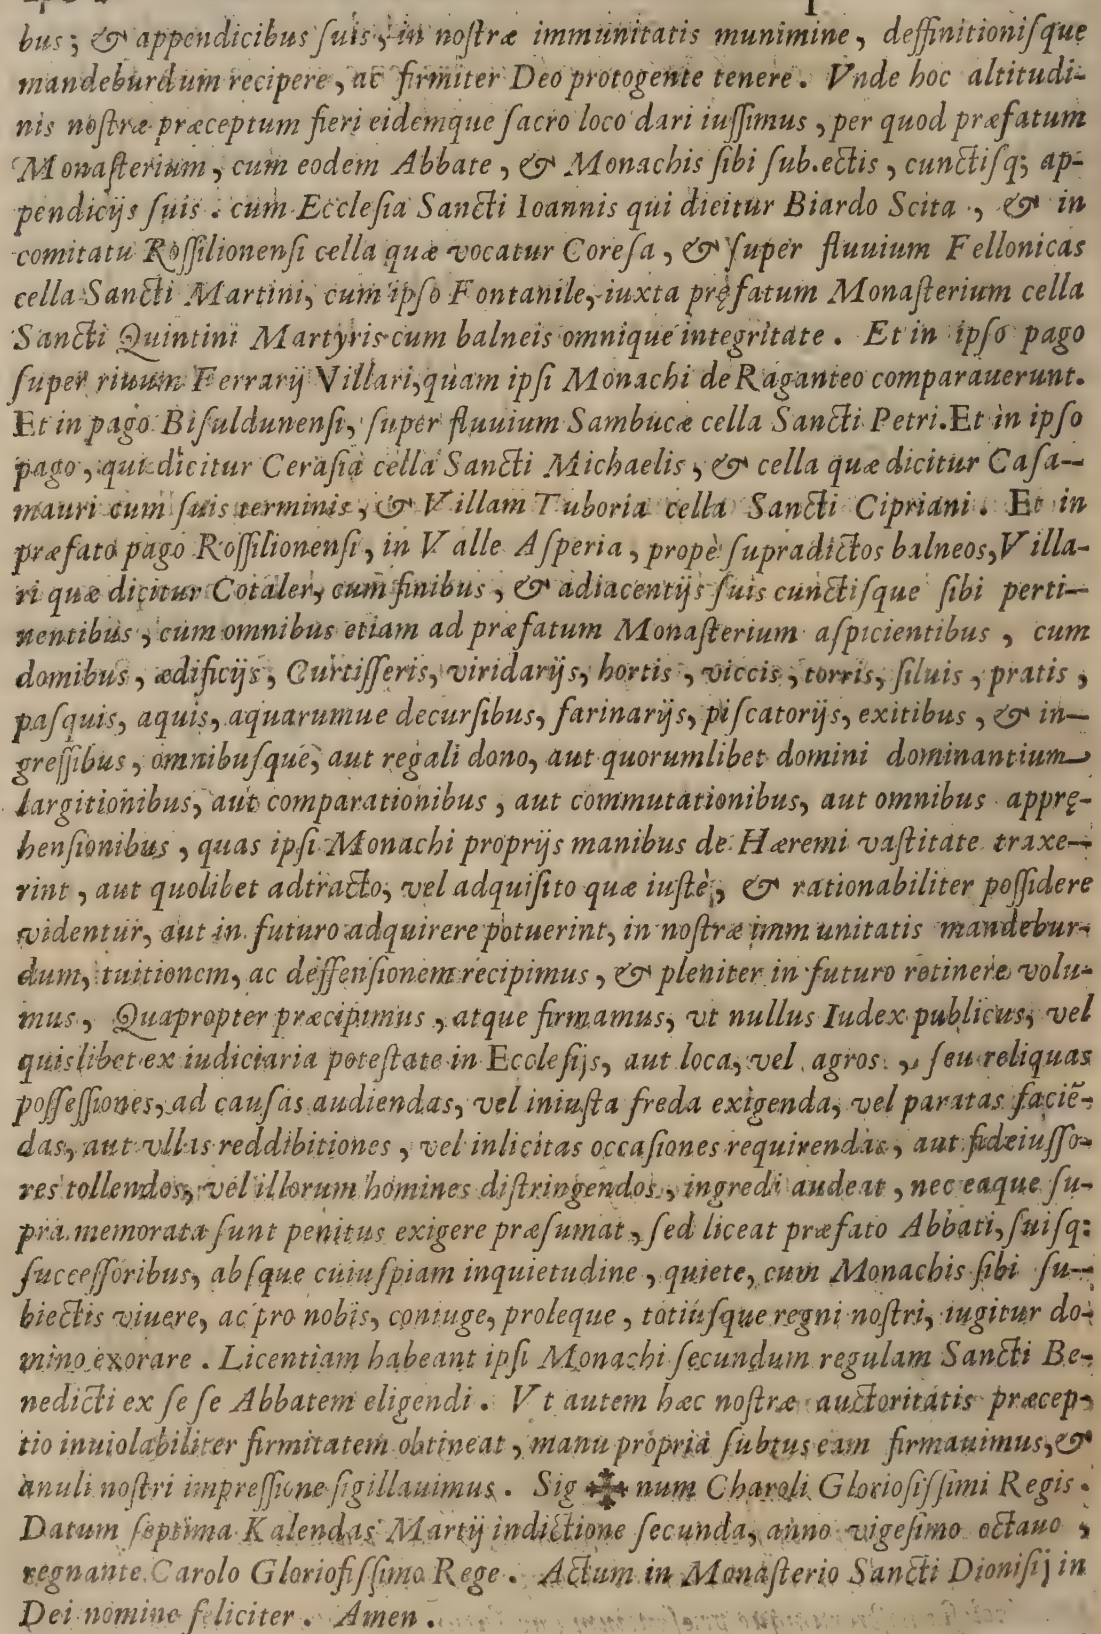 bus; & appendicibus ſuis, in noſtræ immunitatis munimine, deffinitioniſque
mandeburdum recipere, ac firmiter Deo protogente tenere. Vnde hoc altitudi-
nis noſtræ præceptum fieri eidemque ſacro loco dari iuſſimus, per quod præfatum
Monaſterium, cum eodem Abbate, & Monachis ſibi ſub.ectis, cunctiſq; ap-
pendicijs ſuis. cum Eccleſia Sancti Ioannis qui dieitur Biardo Scita, & in
comitatu Roſſilionenſi cella quæ vocatur Coreſa, & ſuper fluuium Fellonicas
cella Sancti Martini, cum ipſo Fontanile, iuxta pręfatum Monaſterium cella
Sancti Quintini Martyris cum balneis omnique integritate. Et in ipſo pago
ſuper riuum Ferrarij Villari, quam ipſi Monachi de Raganteo comparauerunt.
Et in pago Biſuldunenſi, ſuper fluuium Sambucæ cella Sancti Petri. Et in ipſo
pago, qui dicitur Ceraſia cella Sancti Michaelis, & cella quæ dicitur Caſa-
mauri cum ſuis terminis, & Villam Tuboria cella Sancti Cipriani. Et in
præfato pago Roſſilionenſi, in Valle Aſperia, propè ſupradictos balneos, Villa-
ri quæ dicitur Cotaler, cum finibus, & adiacentijs ſuis cunctiſque ſibi perti-
nentibus, cum omnibus etiam ad præfatum Monaſterium aſpicientibus, cum
domibus, ædificijs, Curtiſſeris, viridarijs, hortis, viccis, torris, ſiluis, pratis,
paſquis, aquis, aquarumue decurſibus, farinarijs, piſcatorijs, exitibus, & in-
greſſibus, omnibuſque, aut regali dono, aut quorumlibet domini dominantium
largitionibus, aut comparationibus, aut commutationibus, aut omnibus apprę-
henſionibus, quas ipſi Monachi proprijs manibus de Hæremi vaſtitate traxe-
rint, aut quolibet adtracto, vel adquiſito quæ iuſtè, & rationabiliter poſſidere
videntur, aut in futuro adquirere potuerint, in noſtræ imm unitatis mandebur-
dum, tuitionem, ac deffenſionem recipimus, & pleniter in futuro retinere volu-
mus, Quapropter præcipimus, atque firmamus, vt nullus Iudex publicus, vel
quislibet ex iudiciaria poteſtate in Eccleſijs, aut loca, vel agros, ſeu reliquas
poſſeſſiones, ad cauſas audiendas, vel iniuſta freda exigenda, vel paratas faciē-
das, aut vllas reddibitiones, vel inlicitas occaſiones requirendas, aut fideiuſſo-
res tollendos, vel illorum homines diſtringendos, ingredi audeat, nec eaque ſu-
pra memorata ſunt penitus exigere præſumat, ſed liceat præfato Abbati, ſuiſq:
ſucceſſoribus, abſque cuiuſpiam inquietudine, quiete, cum Monachis ſibi ſu-
biectis viuere, ac pro nobis, coniuge, proleque, totiuſque regni noſtri, iugitur do-
mino exorare. Licentiam habeant ipſi Monachi ſecundum regulam Sancti Be-
nedicti ex ſe ſe Abbatem eligendi. Vt autem hæc noſtræ auctoritatis præcep-
tio inuiolabiliter firmitatem obtineat, manu propria ſubtus eam firmauimus, &
anuli noſtri impreſſione ſigillauimus. Sig ✠ num Charoli Glorioſiſſimi Regis.
Datum ſeptima Kalendas Martij indictione ſecunda, anno vigeſimo octauo,
regnante Carolo Glorioſiſſimo Rege. Actum in Monaſterio Sancti Dioniſij in
Dei nomine feliciter. Amen.